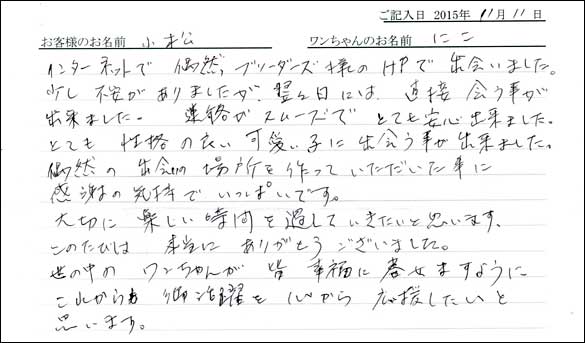 ご記入日 2015年 11月 11日
お客様のお名前 小松 ワンちゃんのお名前 にこ
インターネットで 偶然、ブリーダーズ様のHPで 出会いました。
少し 不安がありましたが、翌々日には、直接 会う事が
出来ました。 連絡がスムーズで とても安心出来ました。
とても 性格の良い 可愛い子に 出会う事が出来ました。
偶然の 出会いの 場所を作って いただいた事に
感謝の気持で いっぱいです。
大切に 楽しい 時間を過していきたいと思います、
このたびは 本当に ありがとう ございました。
世の中の ワンちゃんが 皆 幸福に 暮せますように
これからも 御活躍を 心から 応援したいと
思います。